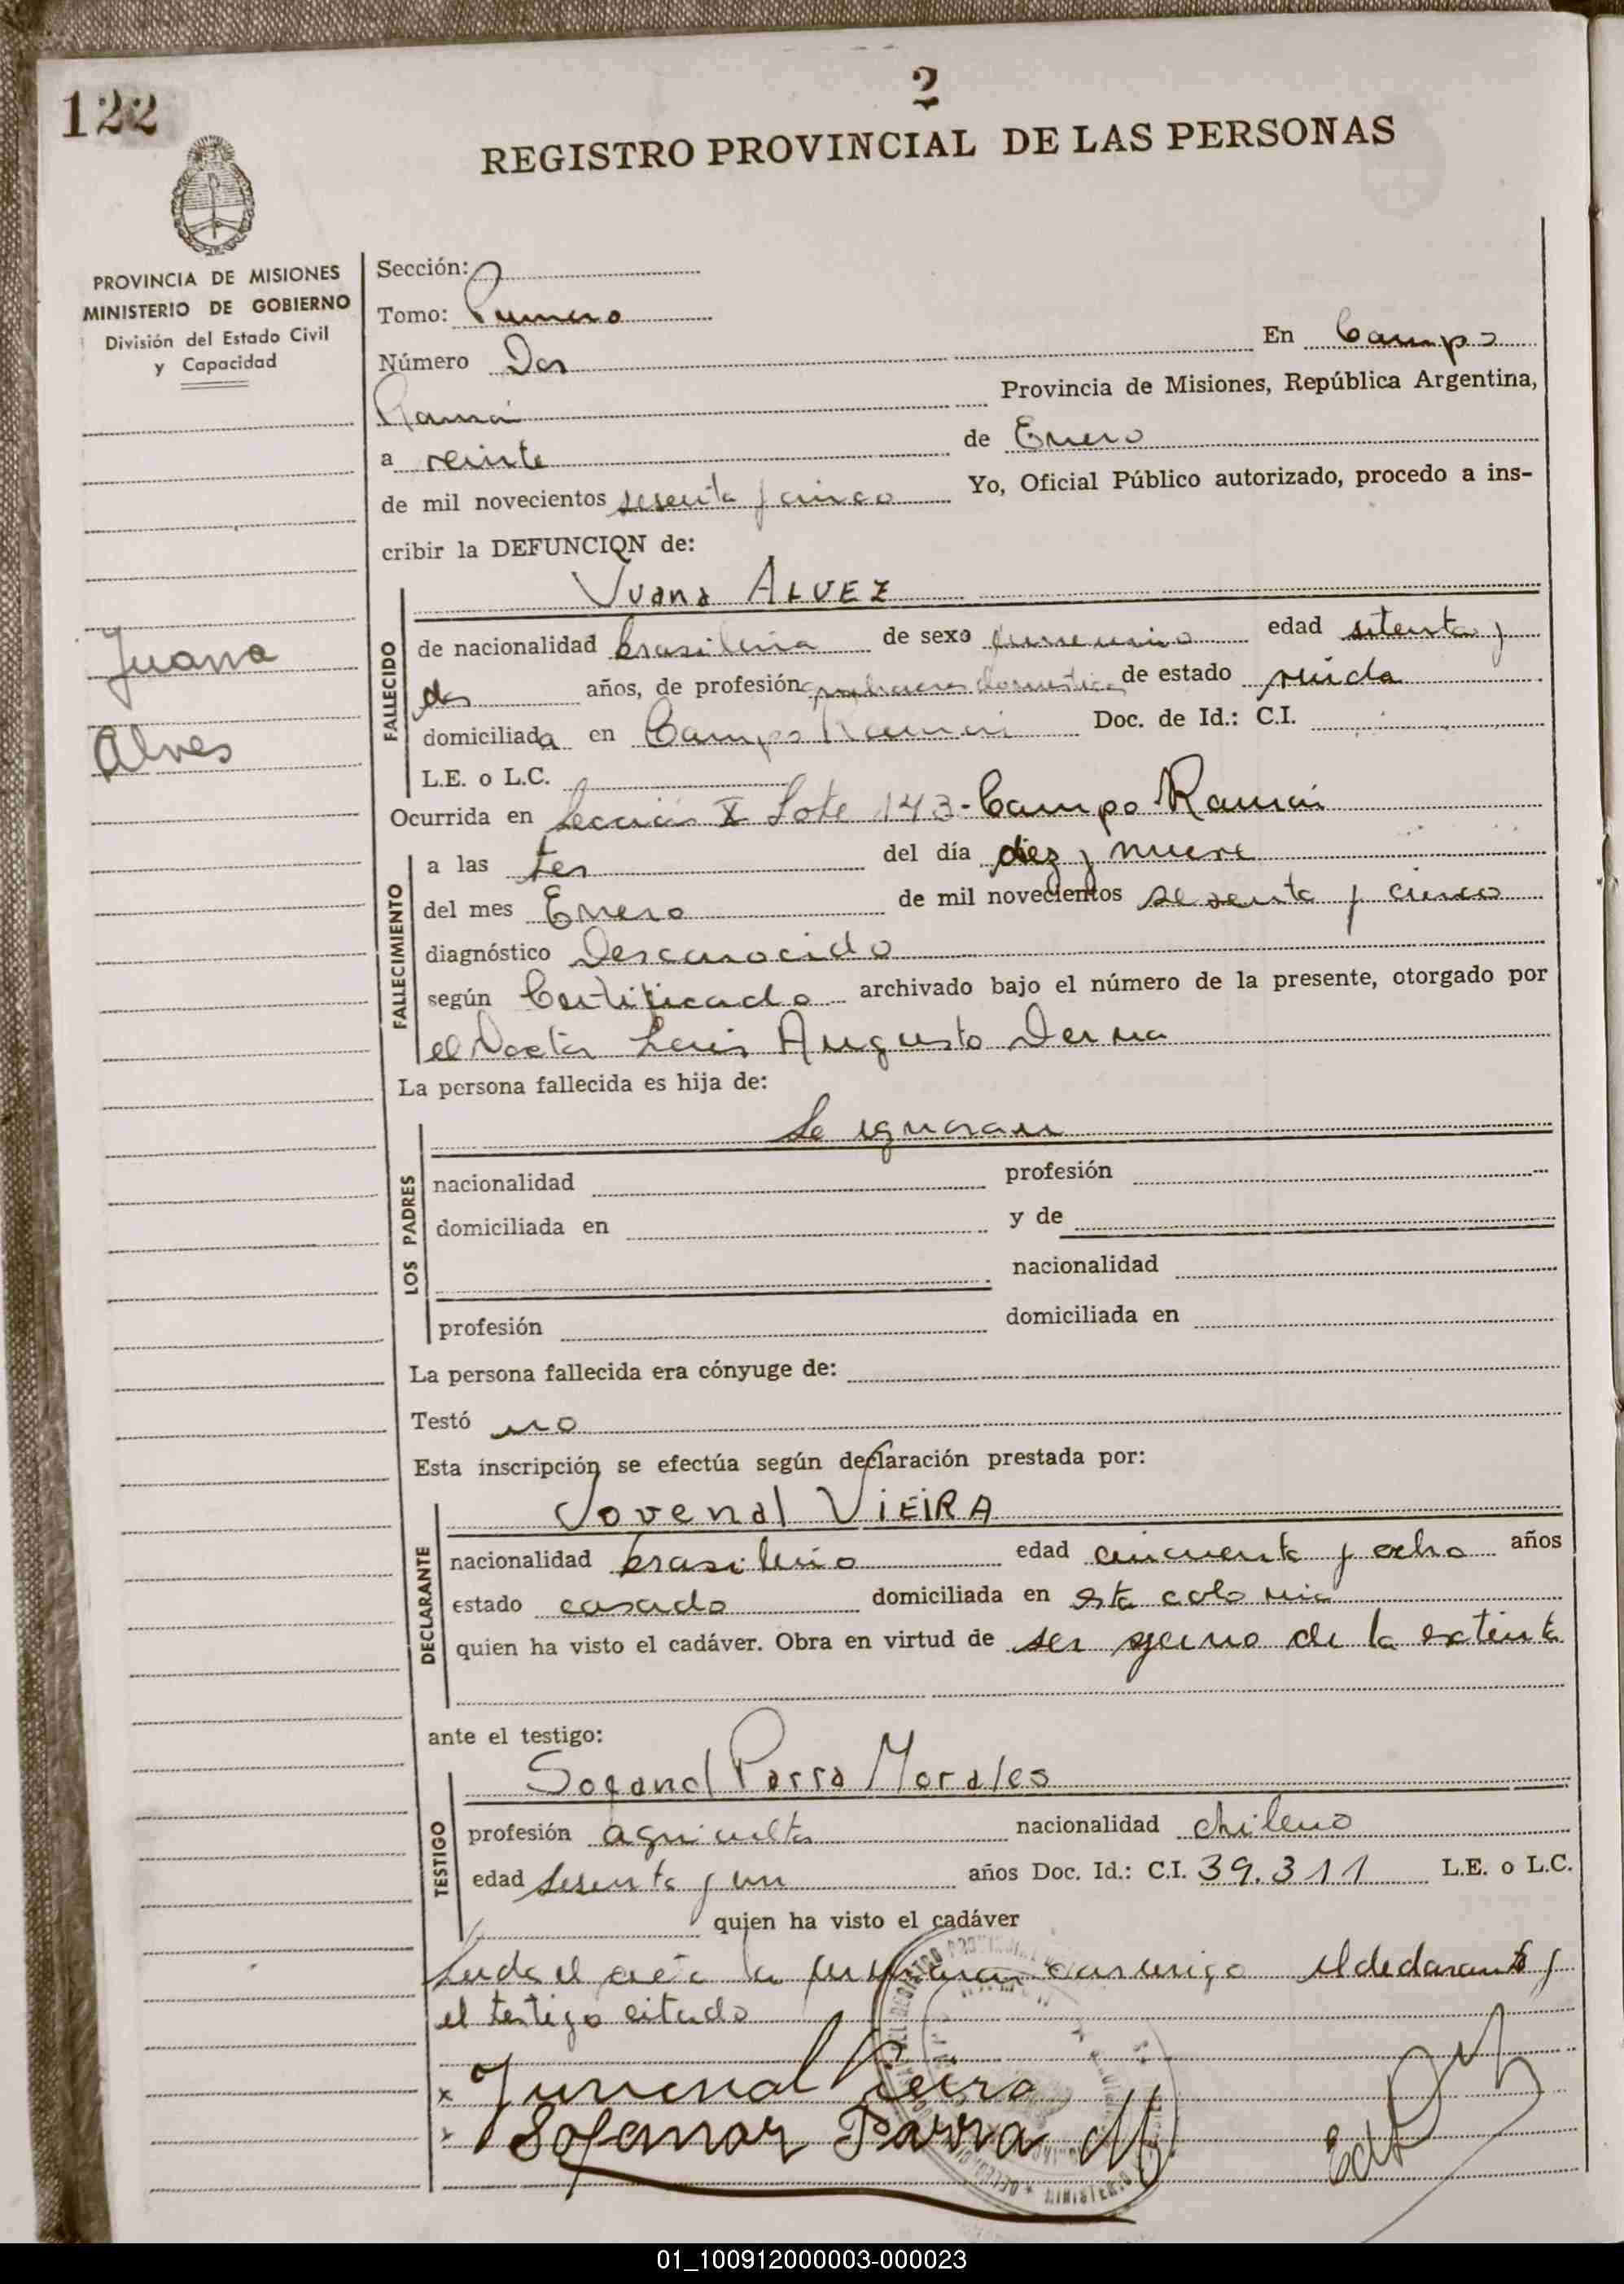 122
2
REGISTRO PROVINCIAL DE LAS PERSONAS
PROVINCIA DE MISIONES
MINISTERIO DE GOBIERNO
División del Estado Civil
y Capacidad
Juana
Alves
Sección:
Tomo: Primero
Número Dos En Campo
Ramón Provincia de Misiones, República Argentina,
a veinte de Enero
de mil novecientos sesenta y cinco Yo, Oficial Público autorizado, procedo a ins-
cribir la DEFUNCION de:
Juana ALVEZ
FALLECIDO
de nacionalidad brasileña de sexo femenino edad setenta y
dos años, de profesión domesticos de estado viuda
domiciliada en Campo Ramón Doc. de Id.: C.I.
L.E. o L.C.
Ocurrida en Sección X Lote 143-Campo Ramón
FALLECIMIENTO
a las tres del día diez y nueve
del mes Enero de mil novecientos sesenta y cinco
diagnóstico Desconocido
según Certificado archivado bajo el número de la presente, otorgado por
el Doctor Luis Augusto Derna
La persona fallecida es hija de:
LOS PADRES
Se ignoran
nacionalidad profesión
domiciliada en y de
nacionalidad
profesión domiciliada en
La persona fallecida era cónyuge de:
Testó no
Esta inscripción se efectúa según declaración prestada por:
DECLARANTE
Jovenal VIEIRA
nacionalidad brasileño edad cincuenta y ocho años
estado casado domiciliada en esta colonia
quien ha visto el cadáver. Obra en virtud de ser yerno de la extinta
ante el testigo:
TESTIGO
Sofanol Parra Morales
profesión agricultor nacionalidad chileno
edad sesenta y un años Doc. Id.: C.I. 39.311 L.E. o L.C.
quien ha visto el cadáver
Leida el acta la firmaron conmigo el declarante y
el testigo citado
x Juvenal Vieira
x Sofanor Parra M
01_100912000003-000023